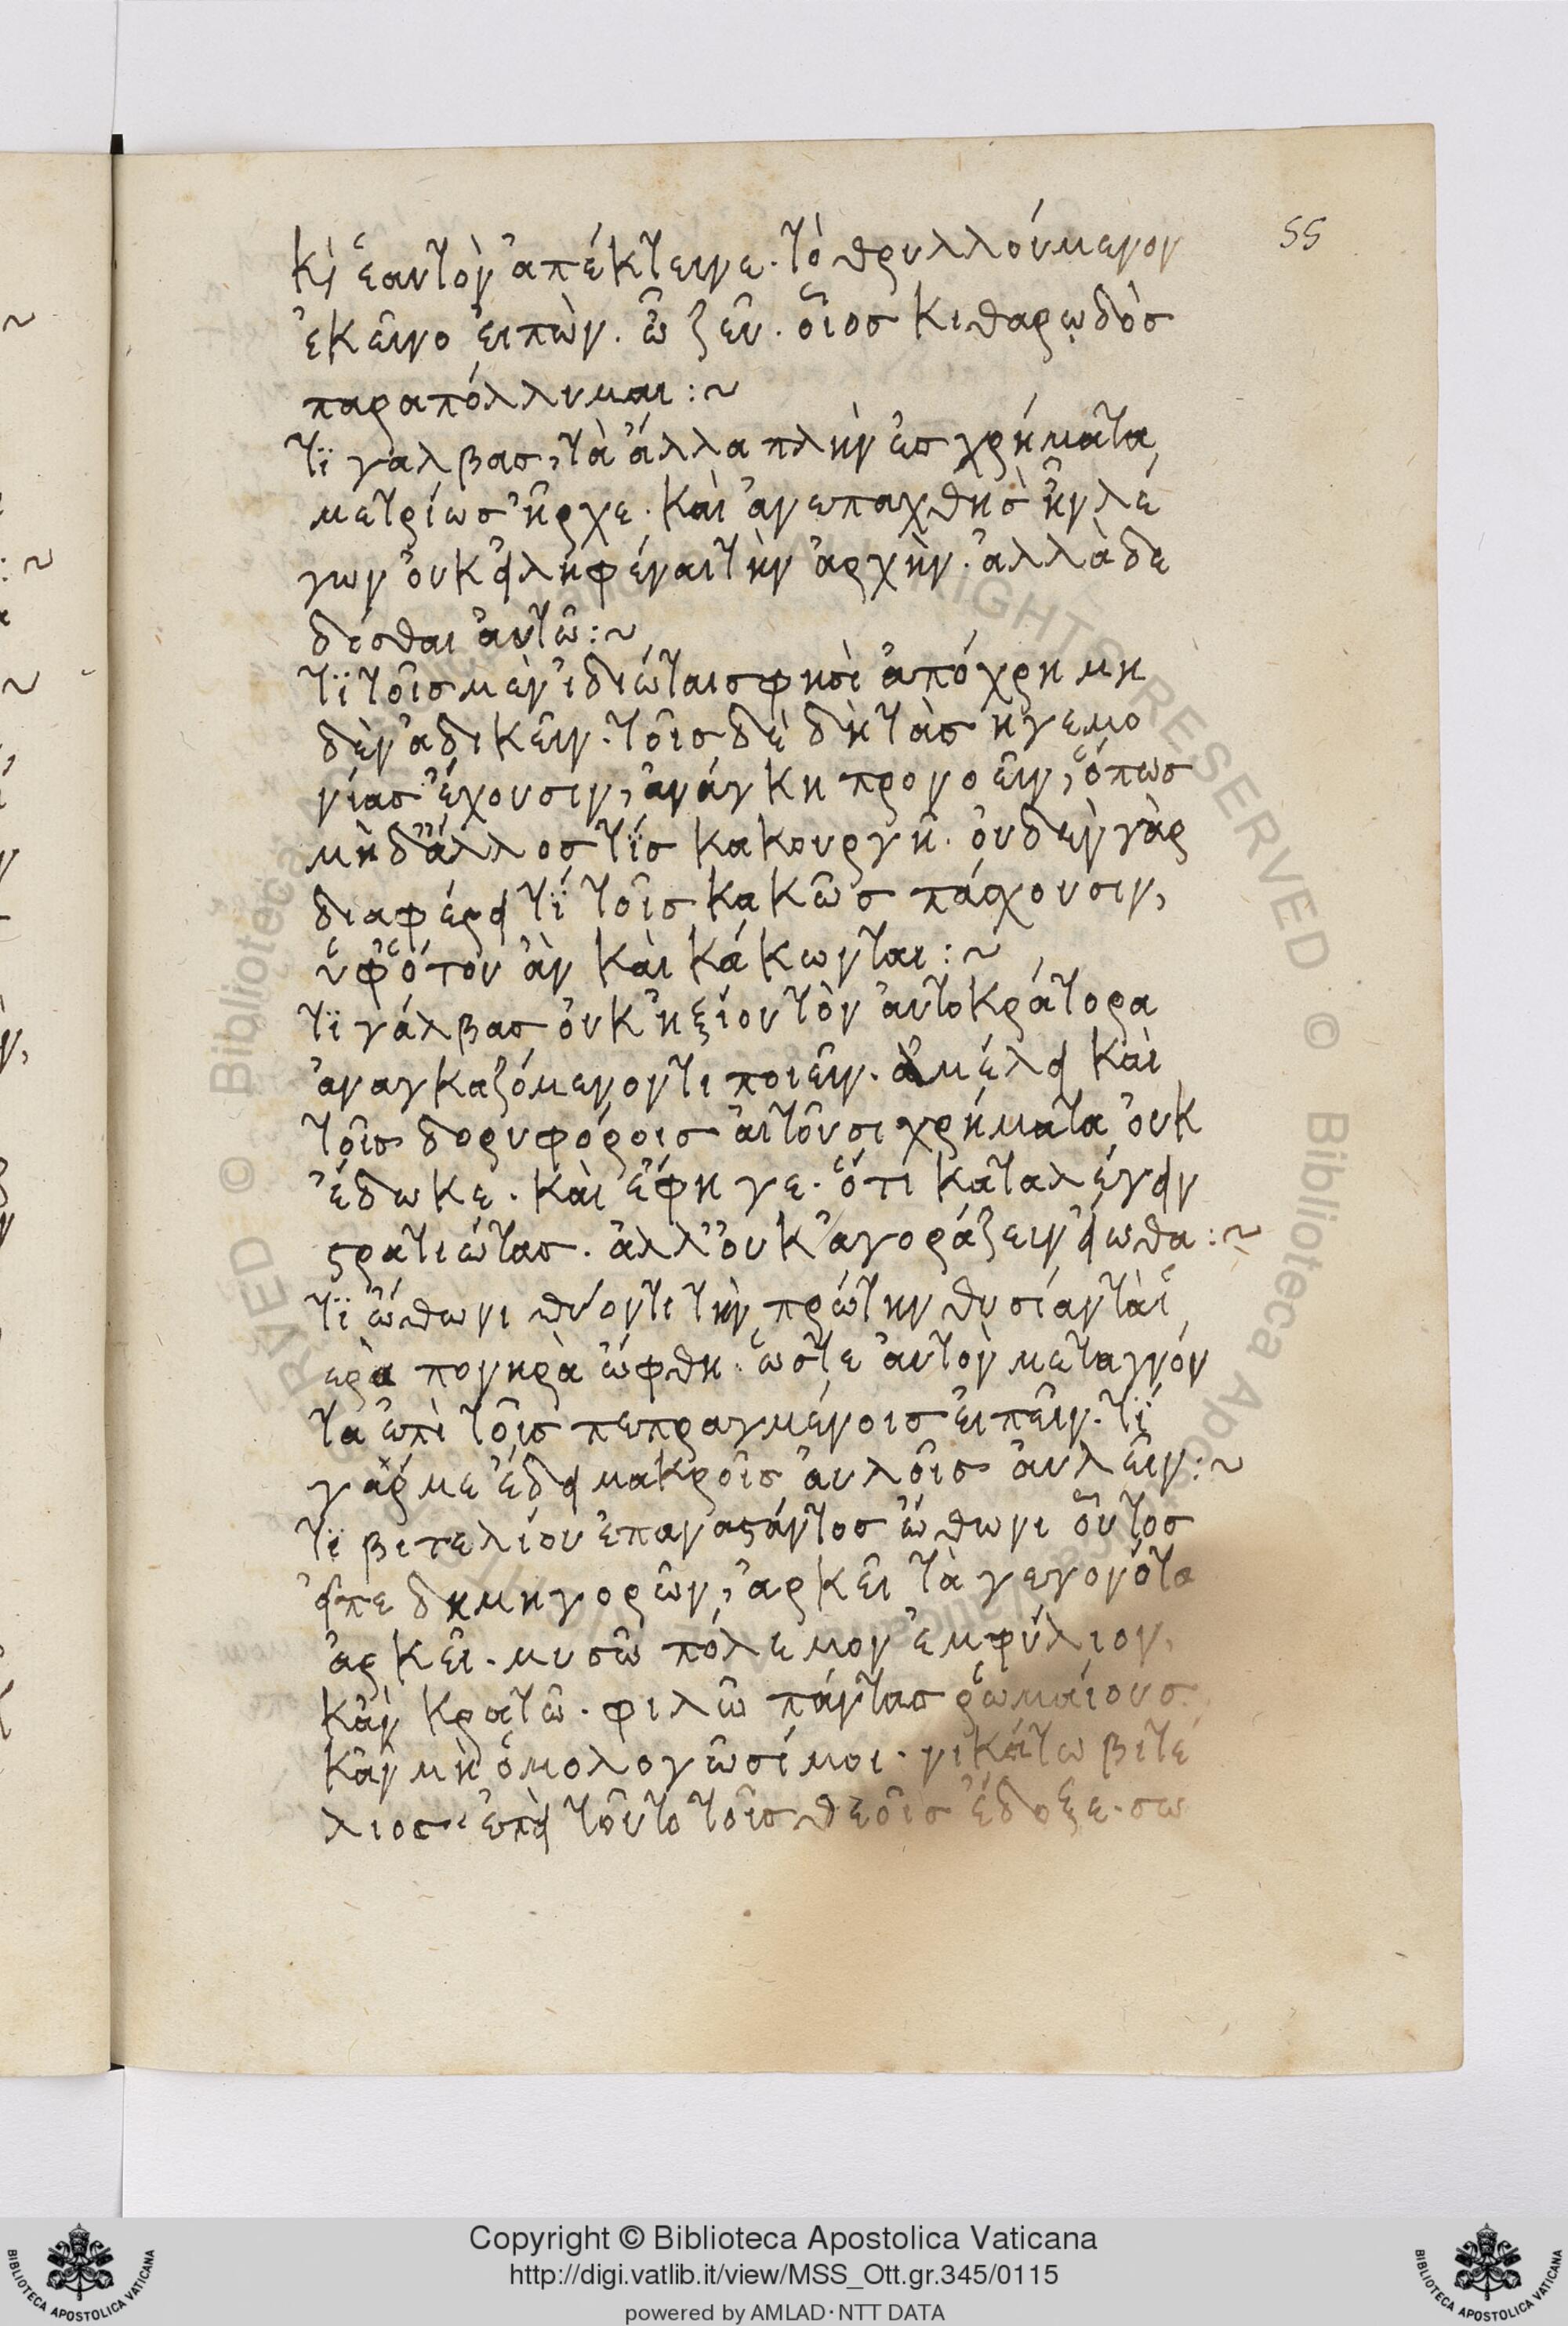 55
κὶ ἑαυτὸν ἀπέκτεινε. τὸ θρυλλούμενον
ἐκεῖνο εἰπὼν. ὦ ζεῦ. οἷος κιθαρῳδὸς
παραπόλλυμαι:~
τϊ γαλβας, τὰ ἄλλα πλὴν ἐς χρήματα,
μετρίως ἦρχε. καὶ ἀνεπαχθὴς ἦν λέ
γων οὐκ εἰληφέναι τὴν ἀρχὴν. ἀλλὰ δε
δόσθαι αὐτῶ:~
τϊ τοῖς μὲν ἰδιώταις φησὶ ἀπόχρη μη
δὲν ἀδικεῖν. τοῖς δὲ δὴ τὰς ἡγεμο
νίας ἔχουσιν, ἀνάγκη προνοεῖν, ὅπως
μὴ δ' ἄλλος τϊς κακουργῆ. οὐδεὶν γὰρ
διαφέρει τϊ τοῖς κακῶς πάσχουσιν,
ὑφ' ὅτου ἂν καὶ κάκωνται:~
τϊ γάλβας οὐκ ἠξίου τὸν αὐτοκράτορα
ἀναγκαζόμενον τι ποιεῖν. ἀμέλει καὶ
τοῖς δορυφόροις αἰτοῦσι χρήματα οὐκ
ἔδωκε. καὶ ἔφη γε. ὅτι καταλέγειν
στρατιώτας. ἀλλ' οὐκ ἀγοράζειν εἴωθα:~
τϊ ὤθωνι θύοντι τὴν πρώτην θυσίαν τὰ ἱ
ερὰ πονηρὰ ὤφθη. ὥστε αὐτὸν μεταγνόν
τα ἐπὶ τοῖς πεπραγμένοις εἰπεῖν. τϊ
γάρ με ἔδει μακροῖς αὐλοῖς αὐλεῖν:~
τϊ βιτελίου ἐπαναστάντος ὤθωνι οὗτος
εἶπε δημηγορῶν, ἀρκεῖ τὰ γεγονότα
ἀρκεῖ. μισῶ πόλεμον ἐμφύλιον,
κἂν κρατῶ. φιλῶ πάντας ῥωμαίους.
κἂν μὴ ὁμολογῶσί μοι. νικάτω βιτέ
λιος. ἐπεὶ τοῦτο τοῖς θεοῖς ἔδοξε. σω
Copyright © Biblioteca Apostolica Vaticana
http://digi.vatlib.it/view/MSS_Ott.gr.345/0115
powered by AMLAD·NTT DATA